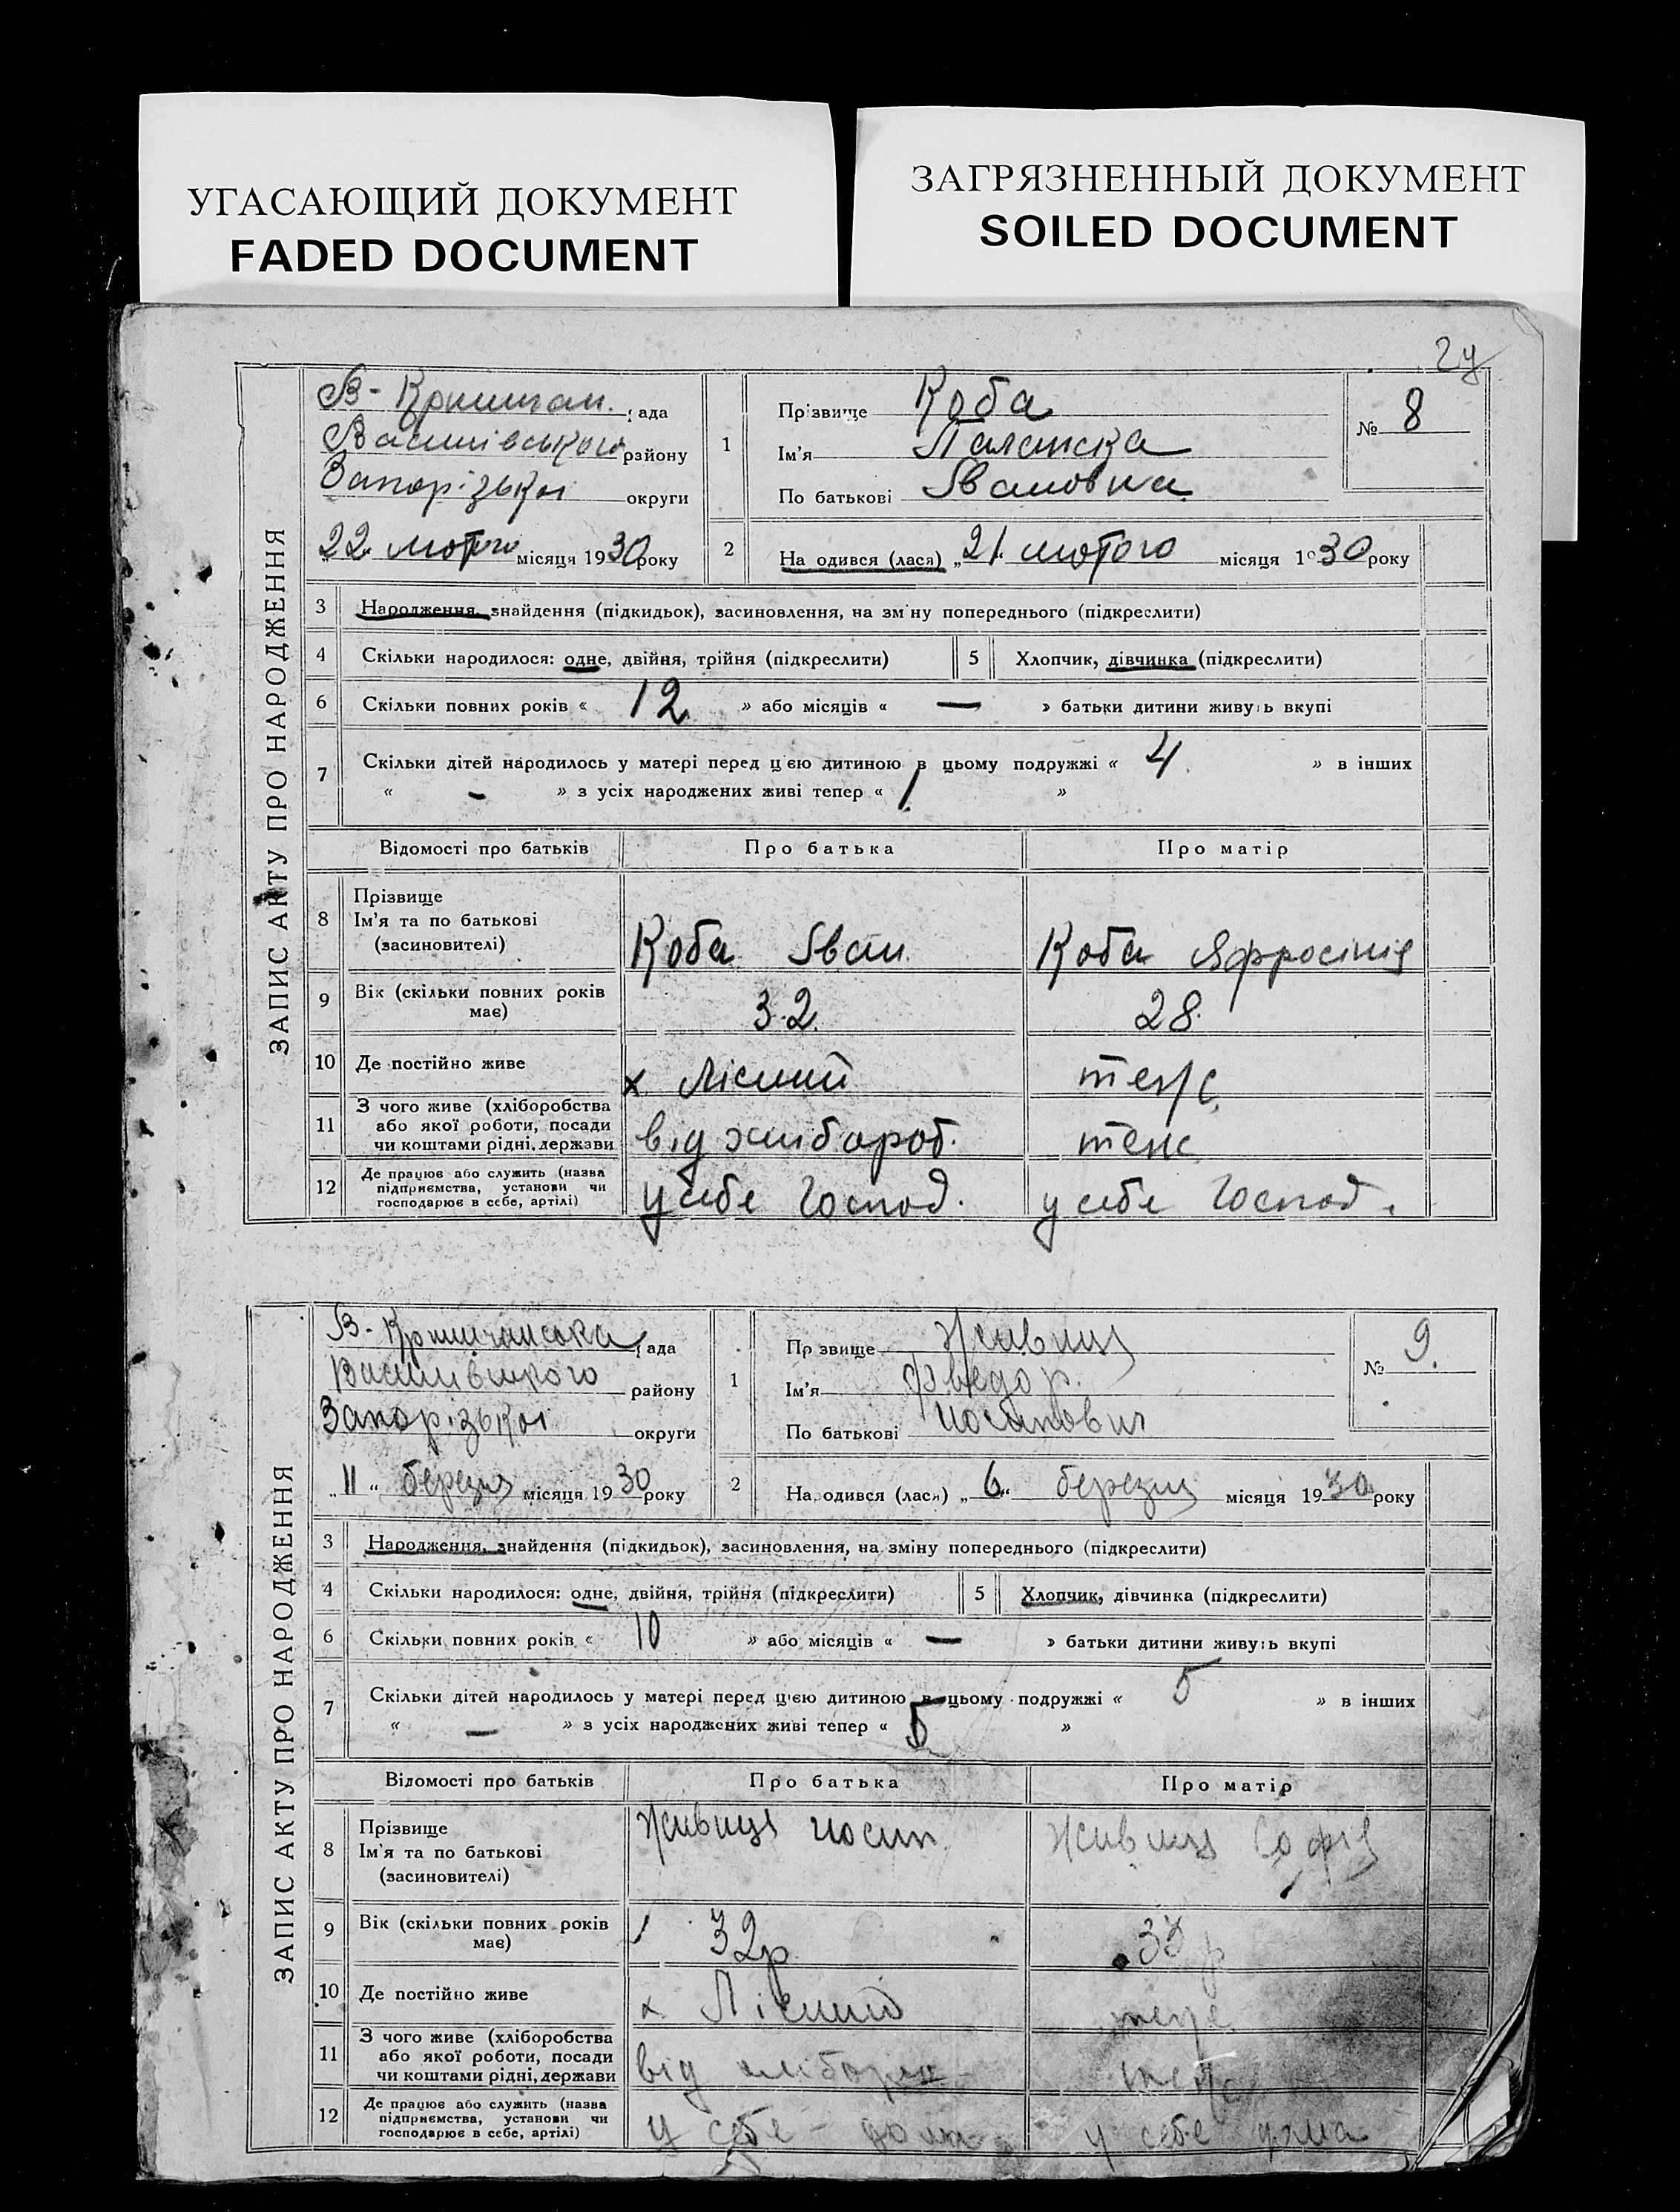 УГАСАЮЩИЙ ДОКУМЕНТ
FADED DOCUMENT
ЗАГРЯЗНЕННЫЙ ДОКУМЕНТ
SOILED DOCUMENT
ЗАПИС АКТУ ПРО НАРОДЖЕННЯ
В-Криничан. рада
Василівського району
Запорізької округи
22 лютого місяця 1930 року
1 Прізвище Коба
Ім'я
По батькові Івановна
№ 8
2 Народився (лася) „21 лютого місяця 1930 року
3 Народження, знайдення (підкидьок), засиновлення, на зміну попереднього (підкреслити)
4 Скільки народилося: одне, двійня, трійня (підкреслити) 5 Хлопчик, дівчинка (підкреслити)
6 Скільки повних років « 12 » або місяців « — » батьки дитини живуть вкупі
7 Скільки дітей народилось у матері перед цією дитиною в цьому подружжі « 4 » в інших
« - » з усіх народжених живі тепер « 1 »
Відомості про батьків Про батька Про матір
8 Прізвище
Ім'я та по батькові
(засиновителі) Коба Іван Коба Яфросінія
9 Вік (скільки повних років
має) 32 28
10 Де постійно живе х Лісний теж
11 З чого живе (хліборобства
або якої роботи, посади
чи коштами рідні, держави від хлібороб. теж
12 Де працює або служить (назва
підприємства, установи чи
господарює в себе, артілі) у себе господ. у себе господ.
ЗАПИС АКТУ ПРО НАРОДЖЕННЯ
В-Криничанська рада
району
Запорізької округи
„11“ березня місяця 1930 року
1 Прізвище Живиця
Ім'я Фведор.
По батькові Иосипович
№ 9.
2 Народився (лася) „6“ березня місяця 1930 року
3 Народження, знайдення (підкидьок), засиновлення, на зміну попереднього (підкреслити)
4 Скільки народилося: одне, двійня, трійня (підкреслити) 5 Хлопчик, дівчинка (підкреслити)
6 Скільки повних років « 10 » або місяців « — » батьки дитини живуть вкупі
7 Скільки дітей народилось у матері перед цією дитиною в цьому подружжі « 5 » в інших
« — » з усіх народжених живі тепер « 5 »
Відомості про батьків Про батька Про матір
8 Прізвище
Ім'я та по батькові
(засиновителі) Живиця Иосип Живиця Софія
9 Вік (скільки повних років
має) 32р
10 Де постійно живе х Лісний теж
11 З чого живе (хліборобства
або якої роботи, посади
чи коштами рідні, держави від теж
12 Де працює або служить (назва
підприємства, установи чи
господарює в себе, артілі) у себе дома у себе дома